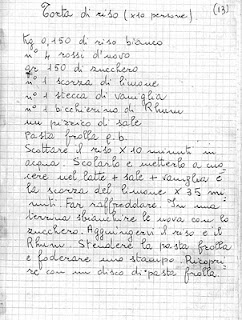 Torta di riso (x10 persone) (13)
Kg 0,150 di riso bianco
n° 4 rossi d'uovo
gr 150 di zucchero
n° 1 scorza di limone
n° 1 stecca di vaniglia
n° 1 bicchierino di Rhum
un pizzico di sale
pasta frolla q.b.
Scottare il riso x 10 minuti in
acqua. Scolarlo e metterlo a cuo
cere nel latte + sale + vaniglia e
la scorza del limone x 35 mi
nuti. Far raffreddare. In una
terrina sbianchire le uova con lo
zucchero. Aggiungervi il riso e il
Rhum. Stendere la pasta frolla
e foderare uno stampo. Ricopri
re con un disco di pasta frolla